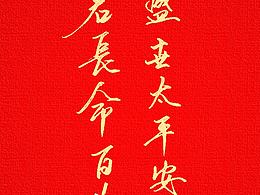 盛世太平安
君長命百